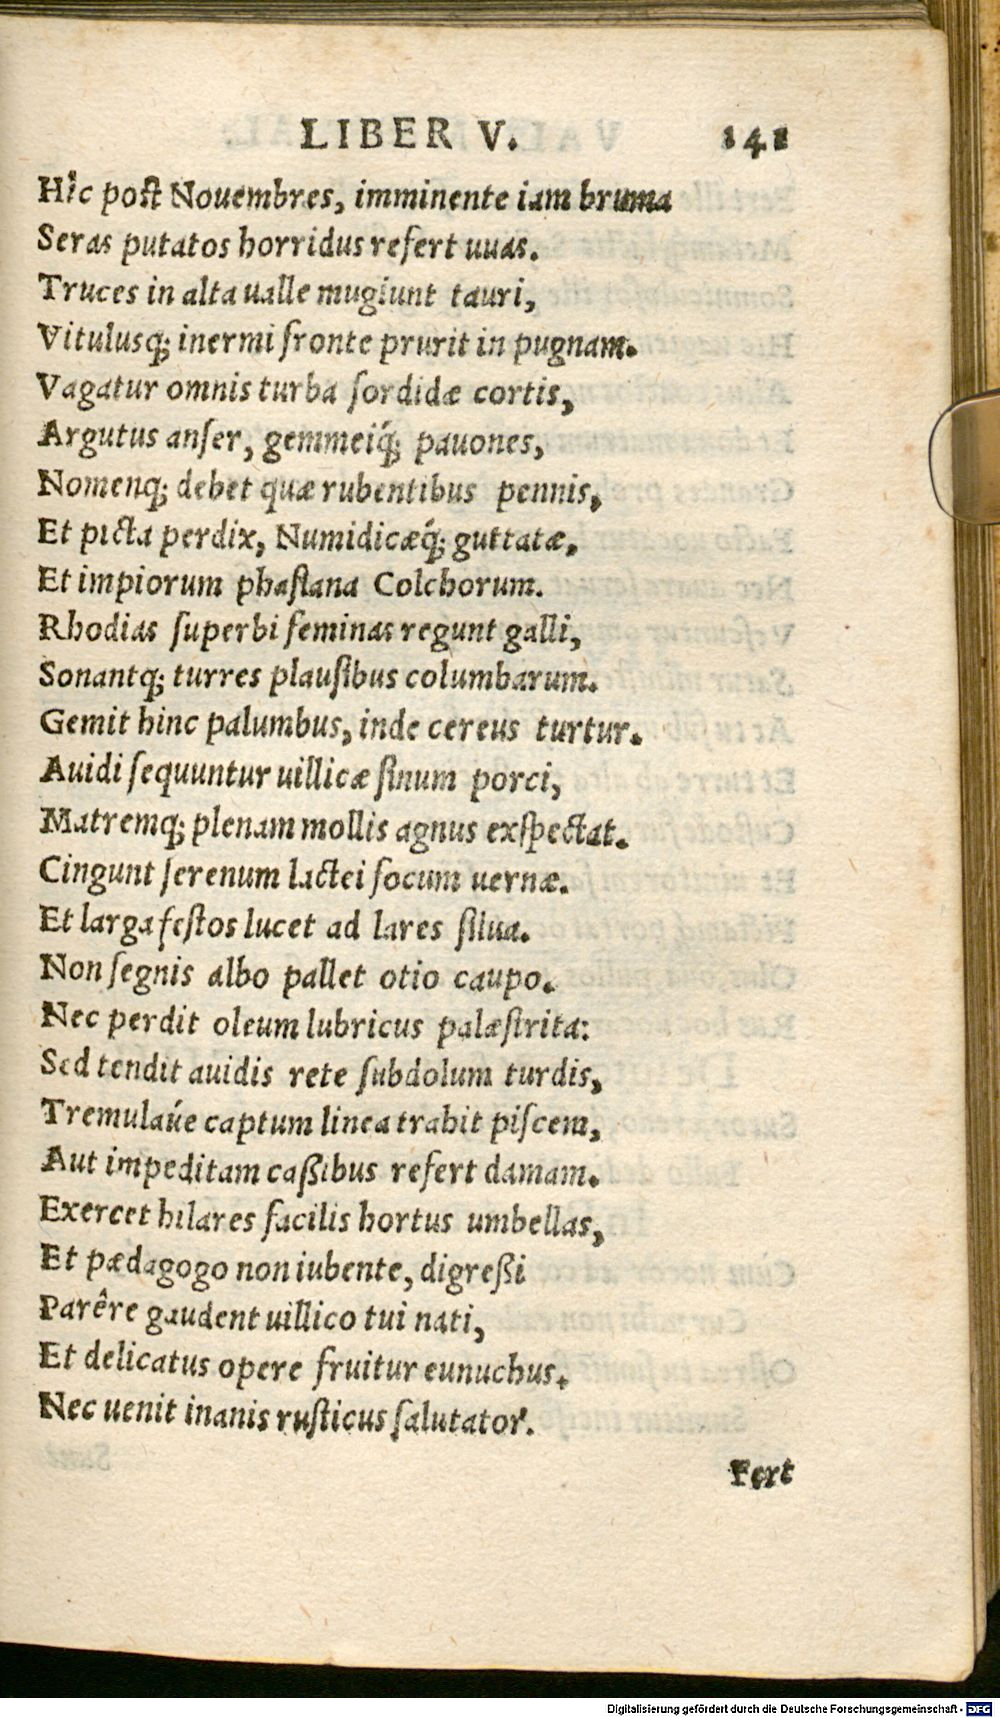 LIBER V. 141
Hîc post Nouembres, imminente iam bruma
Seras putatos horridus refert uuas.
Truces in alta ualle mugiunt tauri,
Vitulusq; inermi fronte prurit in pugnam.
Vagatur omnis turba sordidæ cortis,
Argutus anser, gemmeiq́; pauones,
Nomenq; debet quæ rubentibus pennis,
Et picta perdix, Numidicæq́; guttatæ,
Et impiorum phasiana Colchorum.
Rhodias superbi feminas regunt galli,
Sonantq; turres plausibus columbarum.
Gemit hinc palumbus, inde cereus turtur.
Auidi sequuntur uillicæ sinum porci,
Matremq; plenam mollis agnus exspectat.
Cingunt serenum lactei focum uernæ.
Et larga festos lucet ad lares silua.
Non segnis albo pallet otio caupo.
Nec perdit oleum lubricus palæstrita:
Sed tendit auidis rete subdolum turdis,
Tremulaúe captum linea trahit piscem,
Aut impeditam caßibus refert damam.
Exercet hilares facilis hortus umbellas,
Et pædagogo non iubente, digreßi
Parêre gaudent uillico tui nati,
Et delicatus opere fruitur eunuchus.
Nec uenit inanis rusticus salutator.
Fert
Digitalisierung gefördert durch die Deutsche Forschungsgemeinschaft - DFG